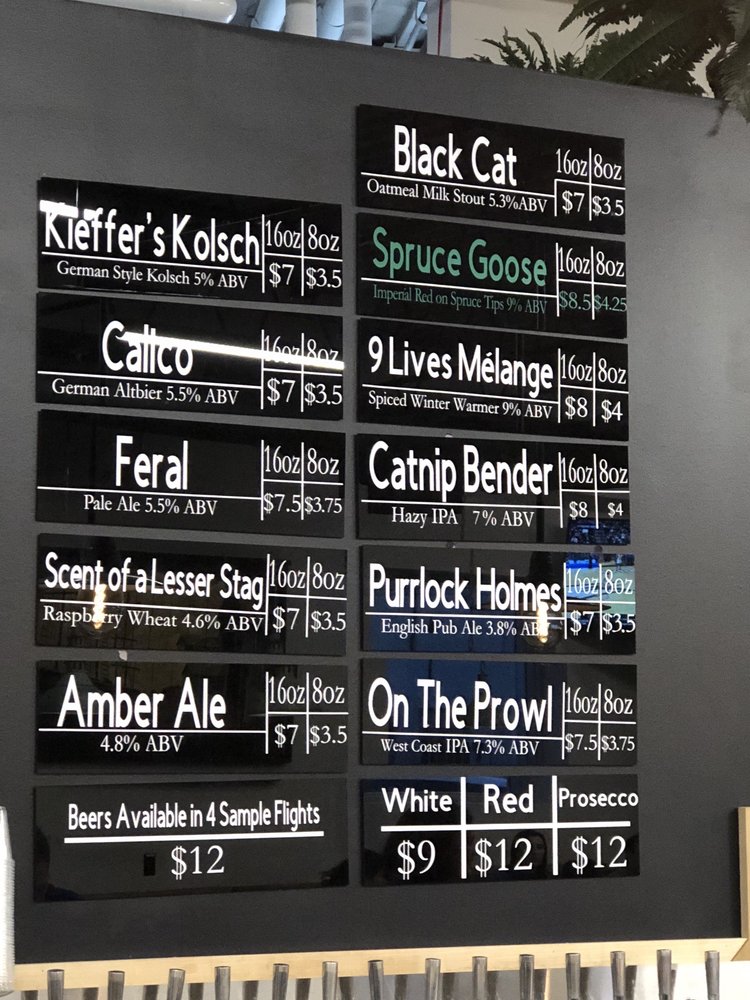 Kieffer's Kolsch 16oz 8oz
German Style Kolsch 5% ABV $7 $3.5
Calico 16oz 8oz
German Altbier 5.5% ABV $7 $3.5
Feral 16oz 8oz
Pale Ale 5.5% ABV $7.5 $3.75
Scent of a Lesser Stag 16oz 8oz
Raspberry Wheat 4.6% ABV $7 $3.5
Amber Ale 16oz 8oz
4.8% ABV $7 $3.5
Beers Available in 4 Sample Flights
$12
Black Cat 16oz 8oz
Oatmeal Milk Stout 5.3%ABV $7 $3.5
Spruce Goose 16oz 8oz
Imperial Red on Spruce Tips 9% ABV $8.5 $4.25
9 Lives Mélange 16oz 8oz
Spiced Winter Warmer 9% ABV $8 $4
Catnip Bender 16oz 8oz
Hazy IPA 7% ABV $8 $4
Purrlock Holmes 16oz 8oz
English Pub Ale 3.8% ABV $7 $3.5
On The Prowl 16oz 8oz
West Coast IPA 7.3% ABV $7.5 $3.75
White Red Prosecco
$9 $12 $12